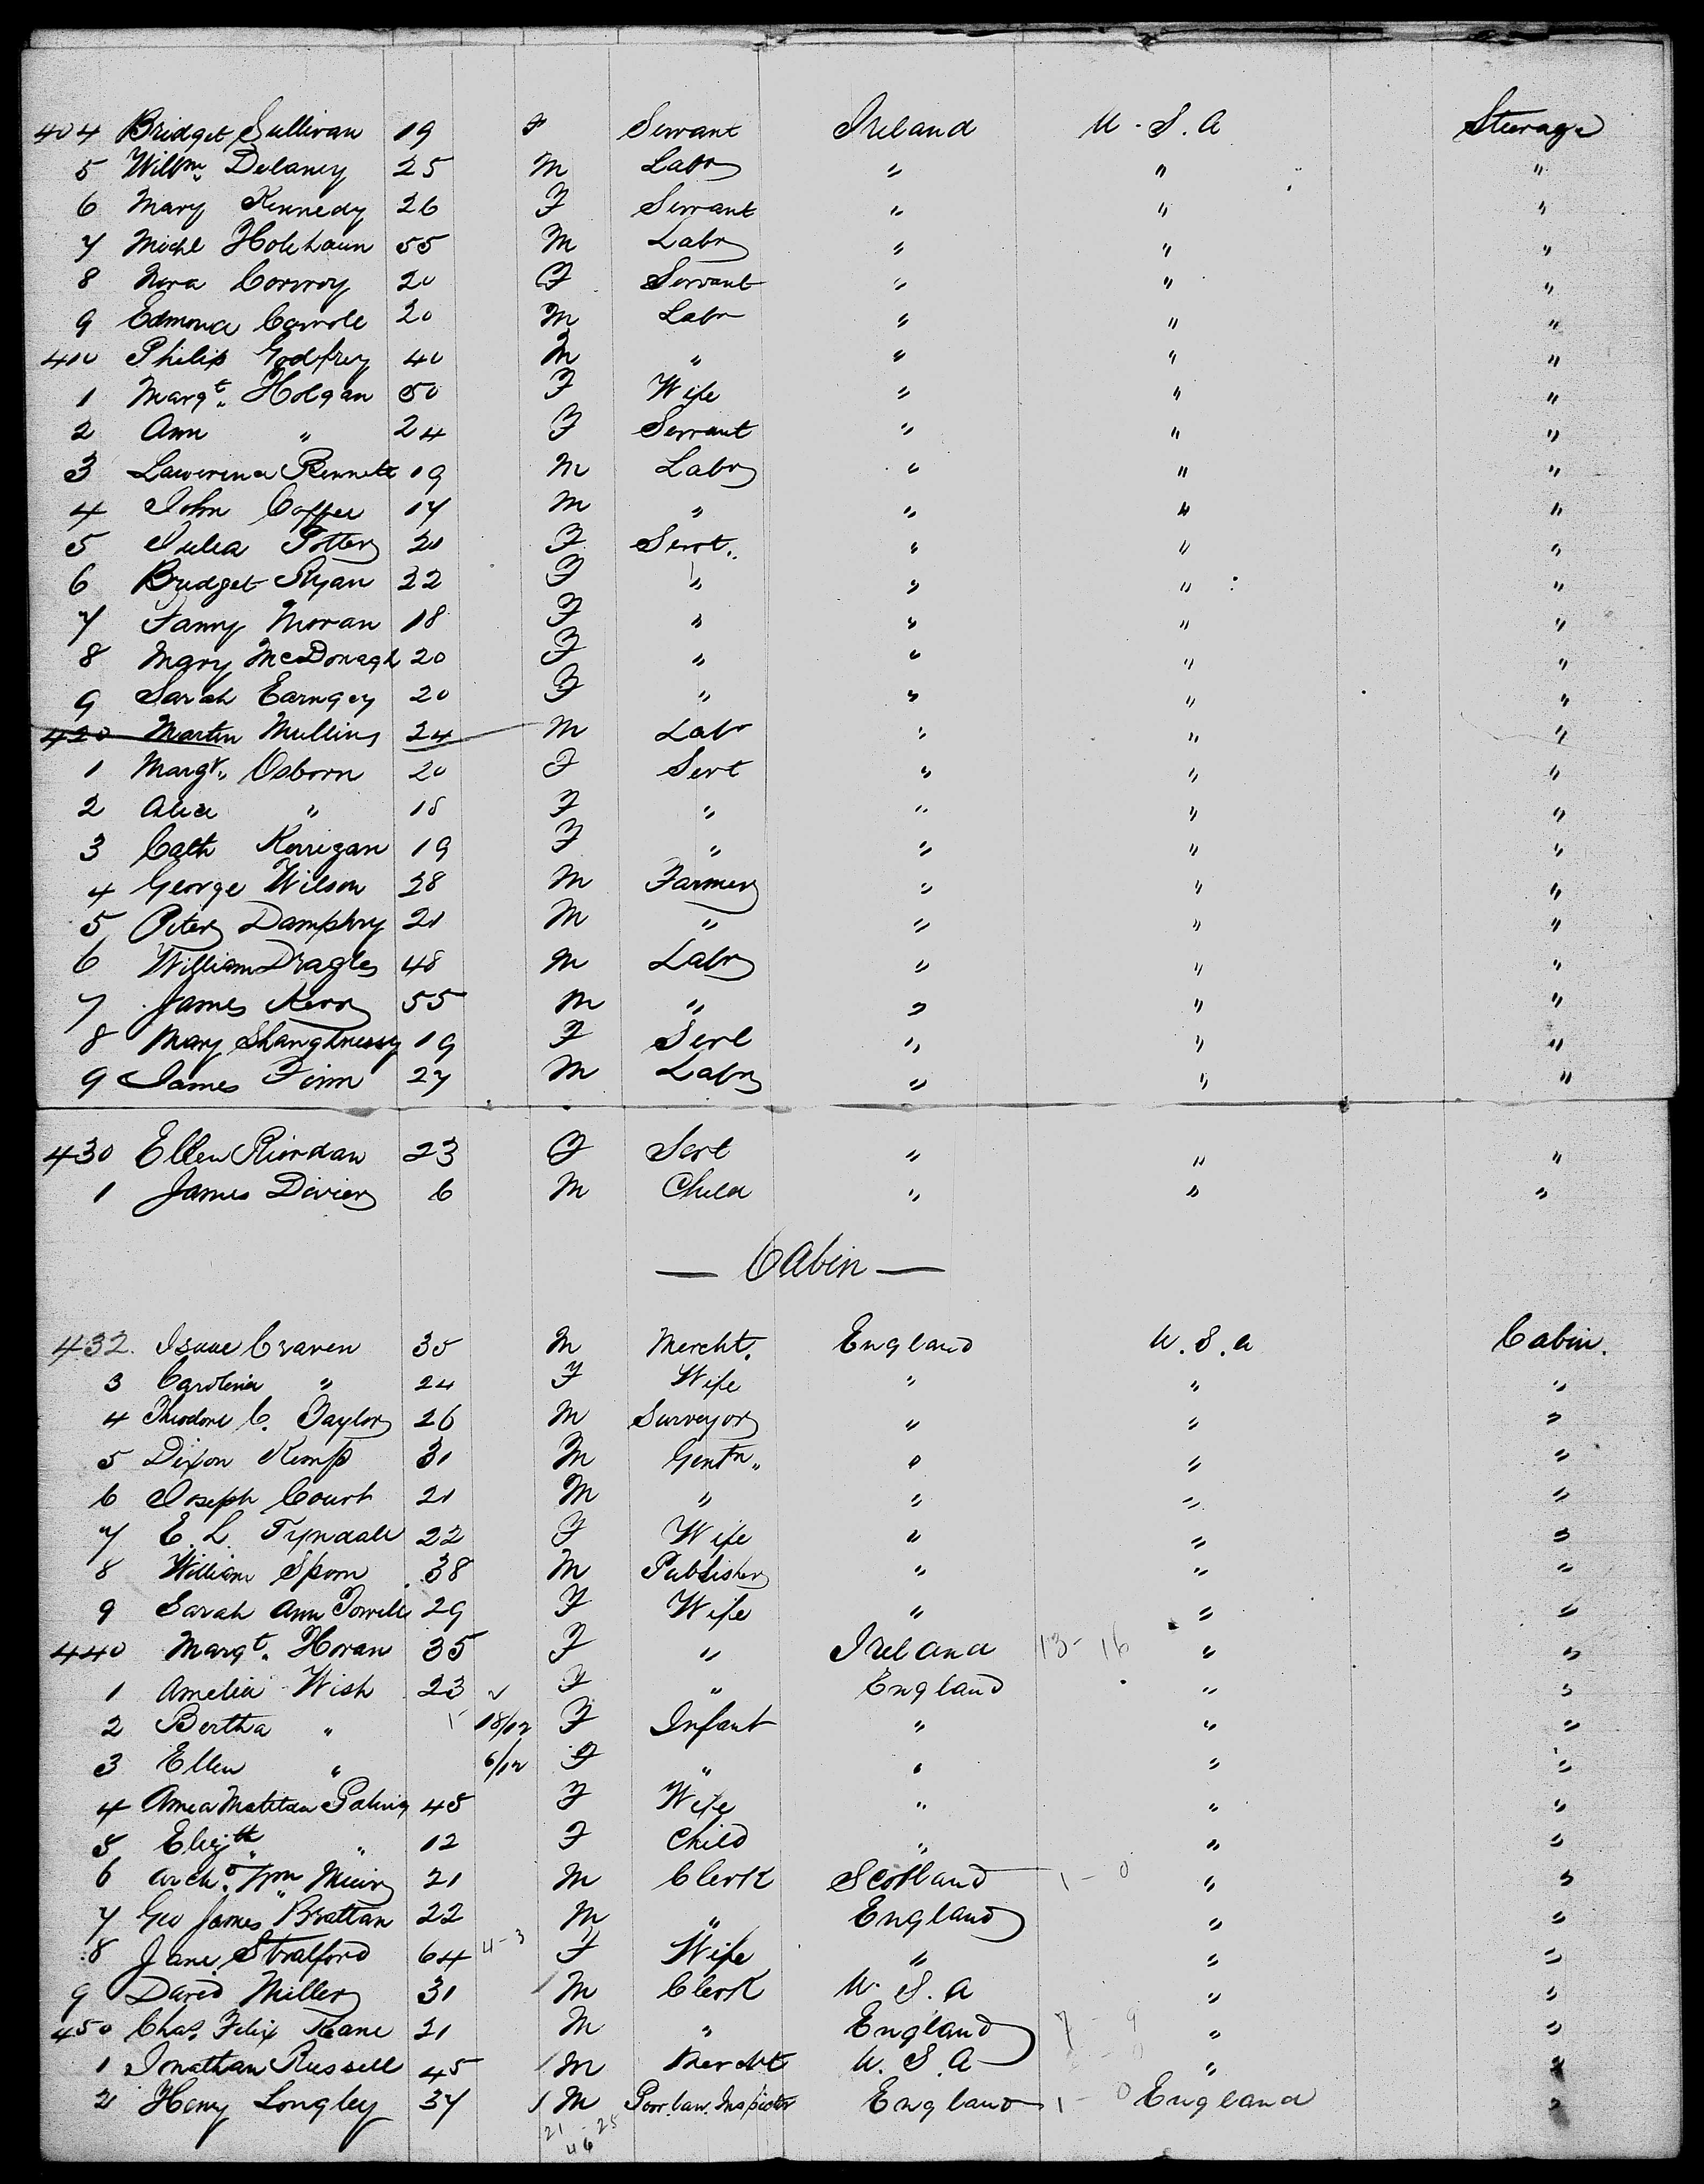 404 Bridget Sullivan 19 F Servant Ireland U.S.A Steerage
5 Willm. Delaney 25 M Labr " " "
6 Mary Kennedy 26 F Servant " " "
7 Michl Holehaun 55 M Labr " " "
8 Nora Conroy 20 F Servant " " "
9 Edmond Carrole 20 M Labr " " "
410 Philip Godfrey 40 M " " " "
1 Margt. Holgan 50 F Wife " " "
2 Ann " 24 F Servant " " "
3 Lawrence Bennett 19 M Labr " " "
4 John Coffee 17 M " " " "
5 Julia Potter 21 F Servt. " " "
6 Bridget Ryan 22 F " " " "
7 Fanny Moran 18 F " " " "
8 Mary McDonagh 20 F " " " "
9 Sarah Earngey 20 F " " " "
420 Martin Mullins 24 M Labr " " "
1 Margt. Osborn 20 F Servt " " "
2 Alice " 18 F " " " "
3 Cath Kerrigan 19 F " " " "
4 George Wilson 28 M Farmer " " "
5 Peter Damphry 21 M " " " "
6 William Dragles 48 M Labr " " "
7 James Kerr 55 M " " " "
8 Mary Shanghnessy 19 F Servt " " "
9 James Finn 27 M Labr " " "
430 Ellen Riordan 23 F Servt " " "
1 James Divier 6 M Child " " "
— Cabin —
432. Isaac Craven 35 M Mercht. England U.S.A Cabin.
3 Carolina " 24 F Wife " " "
4 Theodore C. Taylor 26 M Surveyor " " "
5 Dixon Kemp 31 M Gentn. " " "
6 Joseph Court 21 M " " " "
7 E. L. Tyndall 22 F Wife " " "
8 William Spom 38 M Publisher " " "
9 Sarah Ann 29 F Wife " " "
440 Margt. Horan 35 F " Ireland 13 - 16 " "
1 Amelia Wish 23 F " England " "
2 Bertha " 18/12 F Infant " " "
3 Ellen " 6/12 F " " " "
4 Matilda 45 F Wife " " "
5 Elizth. " 12 F Child " " "
6 Archd. Wm Muir 21 M Clerk Scotland 1 - 0 " "
7 Geo James Brattan 22 M " England " "
8 Jane Stratford 64 4-3 F Wife " " "
9 David Miller 31 M Clerk U.S.A " "
450 Chas. Felix Kane 21 M " England 7 - 9 " "
1 Jonathan Russell 45 M Mercht U.S.A " "
2 Henry Longley 37 M Poor Law Inspector England 1 - 0 England "
21 - 25
46